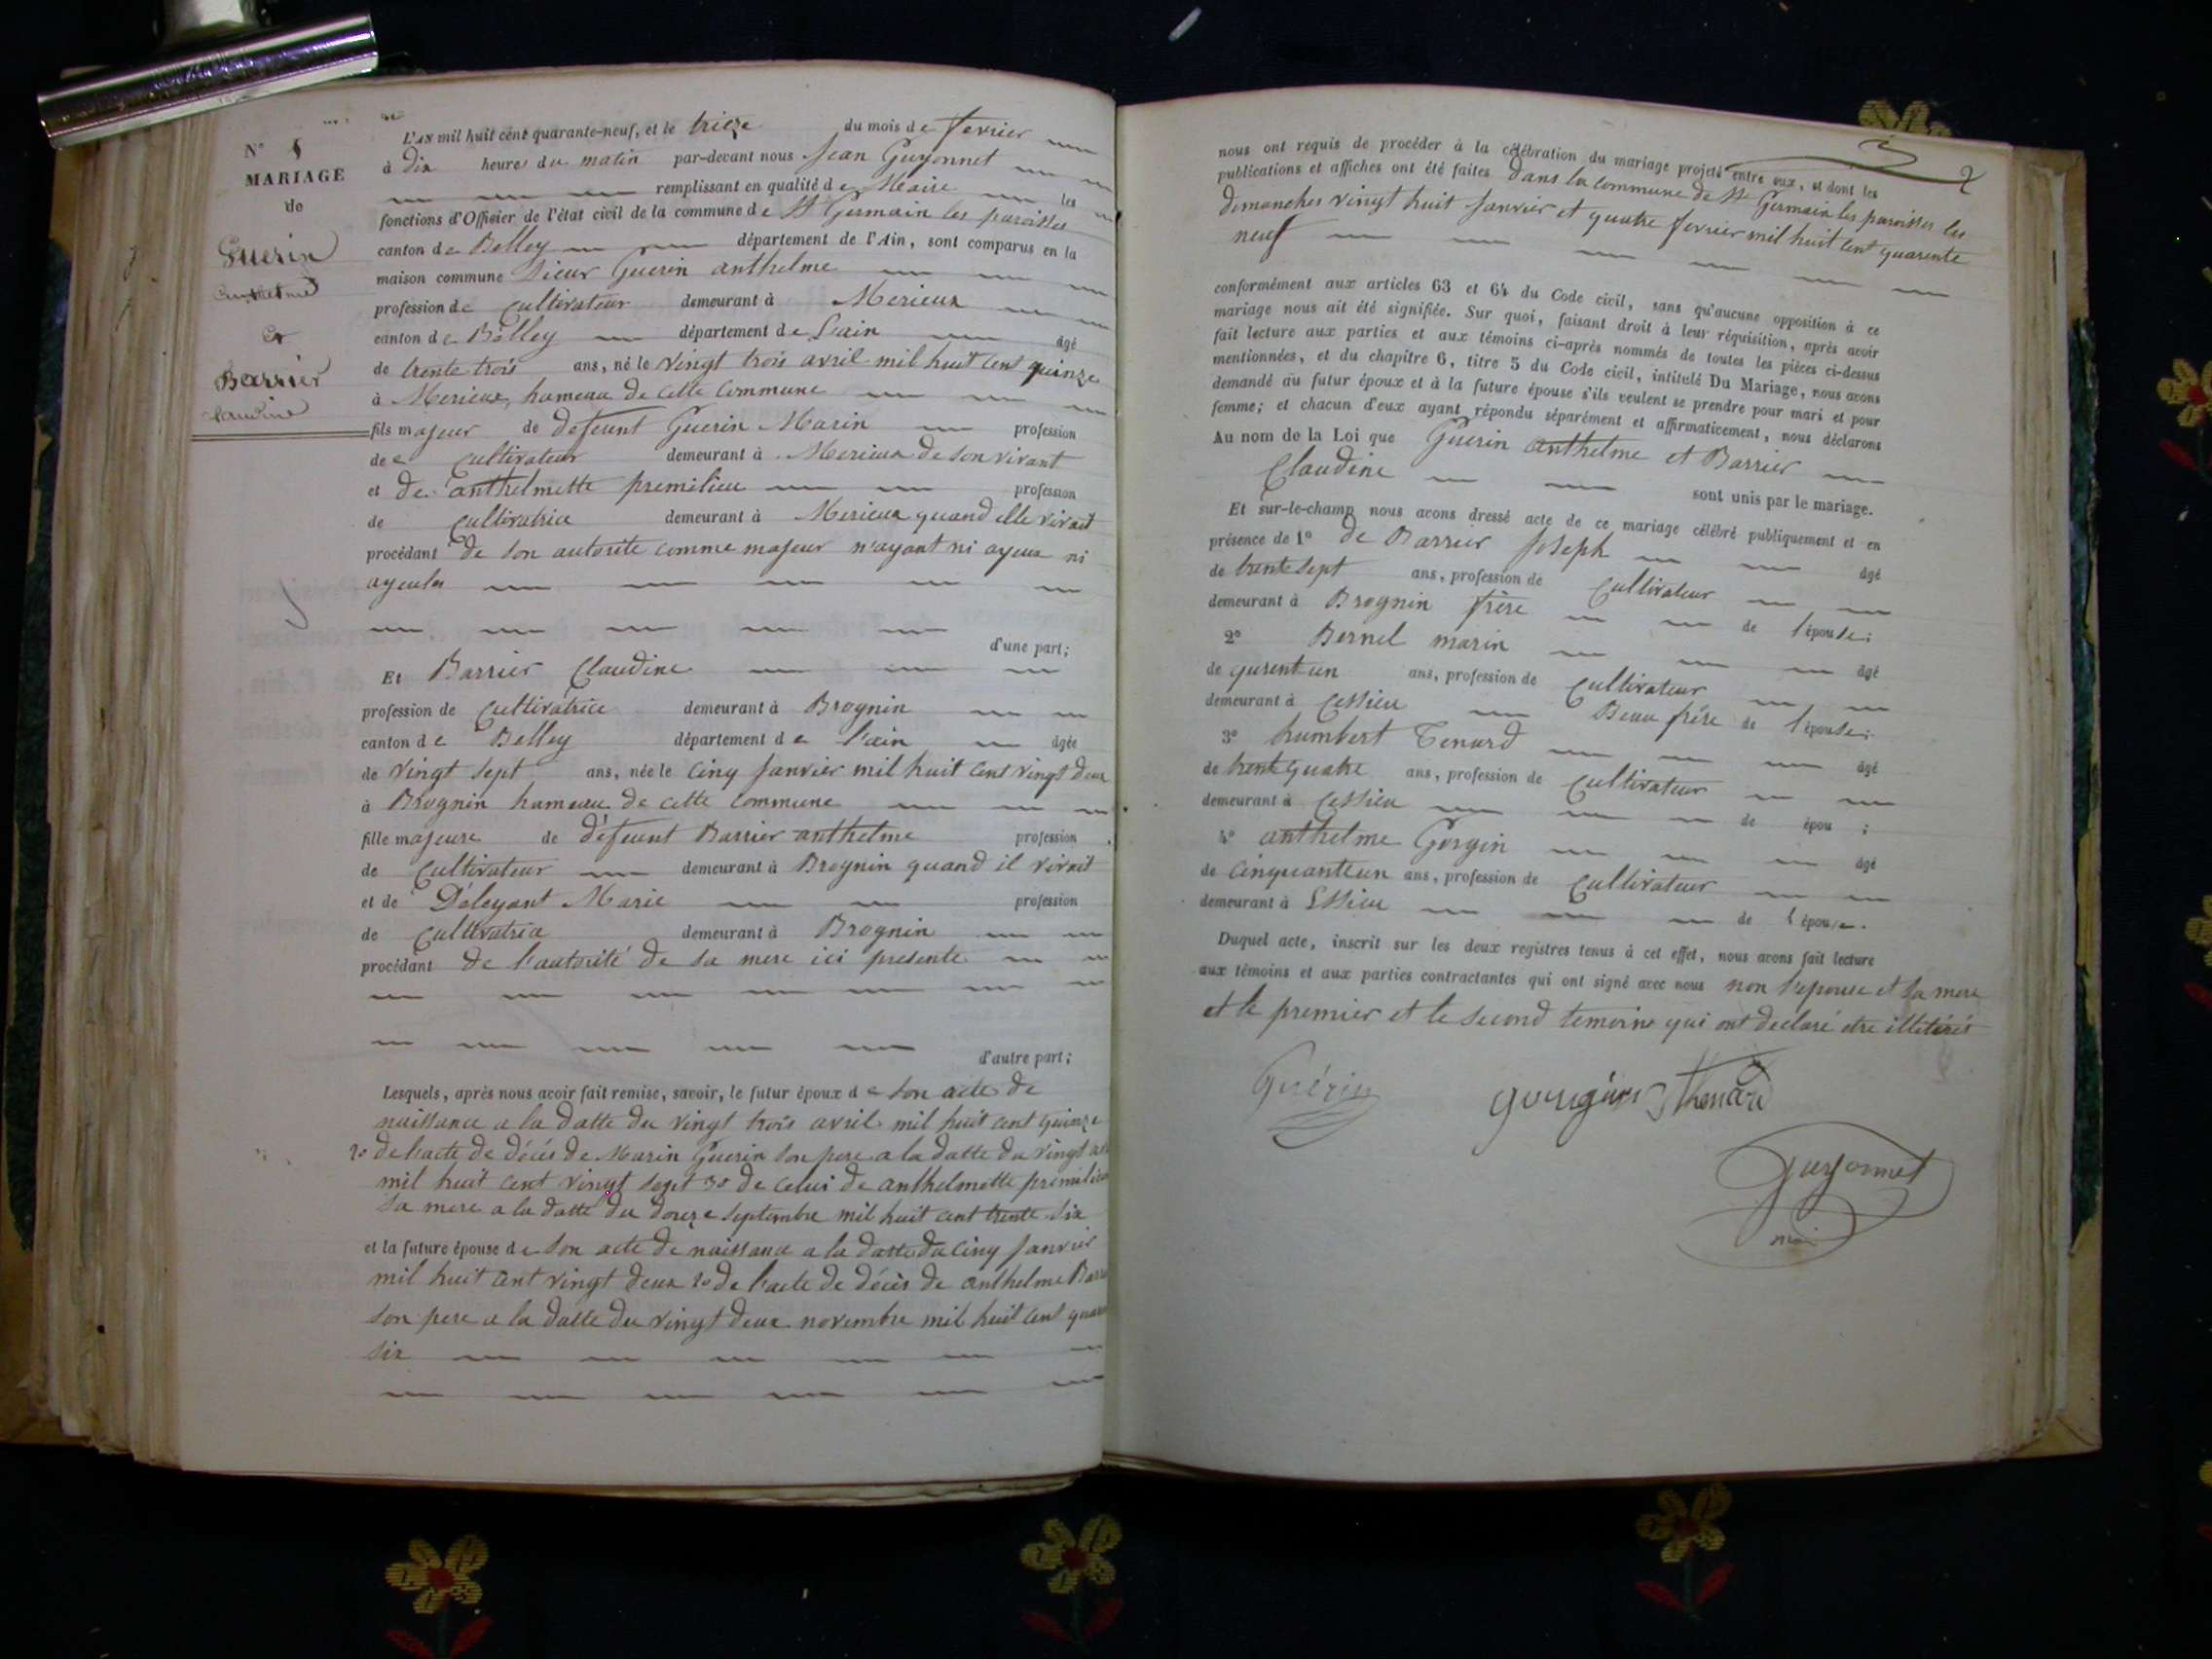 N° 5
MARIAGE
de
Guerin
anthelme
et
Barrier
Claudine
L'AN mil huit cent quarante-neuf, et le trieze du mois de fevrier
à dix heures du matin par-devant nous Jean Guyonnet
remplissant en qualité de Maire les
fonctions d'Officier de l'état civil de la commune de St Germain les paroisses
canton de Belley département de l'Ain, sont comparus en la
maison commune sieur Guerin anthelme
profession de cultivateur demeurant à Merieux
canton de Belley département de L'ain âgé
de trente trois ans, né le vingt trois avril mil huit cent quinze
à Merieux, hameau de cette commune
fils majeur de defeunt Guerin Marin profession
de cultivateur demeurant à Merieux de son vivant
et de anthelmette premilieu profession
de cultivatrice demeurant à Merieux quand elle vivait
procédant de son autorite comme majeur n'ayant ni ayeux ni
ayeules
d'une part;
Et Barrier Claudine
profession de cultivatrice demeurant à Brognin
canton de Belley département de l'ain âgée
de vingt sept ans, née le cinq Janvier mil huit cent vingt deux
à Brognin hameau de cette commune
fille majeure de défeunt Barrier anthelme profession
de cultivateur demeurant à Brognin quand il vivait
et de Déleyant Marie profession
de cultivatrice demeurant à Brognin
procédant de l'autorité de sa mere ici presente
d'autre part;
Lesquels, après nous avoir fait remise, savoir, le futur époux de son acte de
naissance a la datte du vingt trois avril mil huit cent quinze
2° de l'acte de décés de Marin Guerin son pere a la datte du vingt
mil huit cent vingt sept 3° de celui de anthelmette premilieu
sa mere a la datte du douze septembre mil huit cent trente six
et la future épouse de son acte de naissance a la datte du cinq Janvier
mil huit cent vingt deux 2° de l'acte de décès de anthelme Barr
son pere a la datte du vingt deux novembre mil huit cent quar
six
2
nous ont requis de procéder à la célébration du mariage projeté entre eux, et dont les
publications et affiches ont été faites dans la commune de St Germain les paroisses les
dimanches vingt huit Janvier et quatre fevrier mil huit cent quarente
neuf
conformément aux articles 63 et 64 du Code civil, sans qu'aucune opposition à ce
mariage nous ait été signifiée. Sur quoi, faisant droit à leur réquisition, après avoir
fait lecture aux parties et aux témoins ci-après nommés de toutes les pièces ci-dessus
mentionnées, et du chapitre 6, titre 5 du Code civil, intitulé Du Mariage, nous avons
demandé au futur époux et à la future épouse s'ils veulent se prendre pour mari et pour
femme; et chacun d'eux ayant répondu séparément et affirmativement, nous déclarons
Au nom de la Loi que Guerin anthelme et Barrier
Claudine sont unis par le mariage.
Et sur-le-champ nous avons dressé acte de ce mariage célébré publiquement et en
présence de 1° de Barrier Joseph âgé
de trente sept ans, profession de cultivateur
demeurant à Brognin frère de l'épouse;
2° Bernel marin âgé
de qurent un ans, profession de cultivateur
demeurant à cessieu Beau frére de l'épouse;
3° humbert Tenard âgé
de trente quatre ans, profession de cultivateur
demeurant à cessieu de épou ;
4° anthelme Gorgin âgé
de cinquante un ans, profession de cultivateur
demeurant à Essieu de l'épouse.
Duquel acte, inscrit sur les deux registres tenus à cet effet, nous avons fait lecture
aux témoins et aux parties contractantes qui ont signé avec nous non l'epouse et sa mere
et le premier et le second temoins qui ont declaré etre illitérés
Guérin
Thenard
Guyonnet